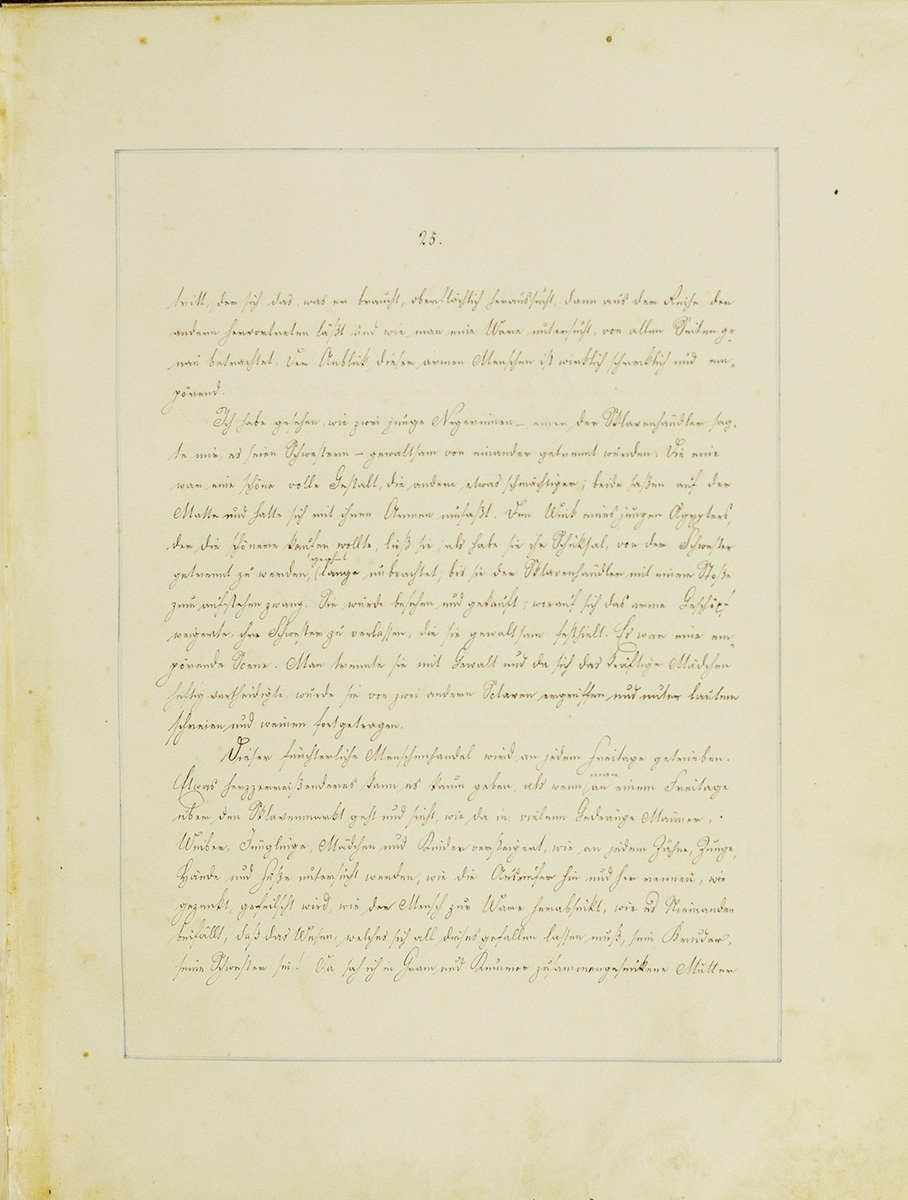 25.
tritt, der sich das, was er braucht, oberflächlich heraussucht, dann aus der Reihe der
andern hervortreten läßt und wie man eine Ware untersucht, von allen Seiten ge-
nau betrachtet. Der Anblick dieser armen Menschen ist wirklich schrecklich und em-
pörend.
Ich habe gesehen, wie zwei junge Negerinnen – einer der Sklavenhändler sag-
te mir, es seien Schwestern – gewaltsam von einander getrennt wurden. Die eine
war eine schöne volle Gestalt, die andere etwas schmächtiger; beide saßen auf der
Matte und hatte sich mit ihren Armen umfaßt. Den Wink eines jungen Ägypters,
der die schönere kaufen wollte, ließ sie, als habe sie ihr Schicksal, von der Schwester
getrennt zu werden, lange unbeachtet, bis sie der Sklavenhändler mit einem Stoße
zum aufstehen zwang. Sie wurde besehen und gekauft; worauf sich das arme Geschöpf
weigerte, ihre Schwester zu verlassen, die sie gewaltsam festhielt. Es war eine em-
pörende Scene. Man trennte sie mit Gewalt und da sich das kräftige Mädchen
heftig vertheidigte, wurde sie von zwei andern Sclaven ergriffen und unter lautem
schreien und weinen fortgetragen.
Dieser fürchterliche Menschenhandel wird an jedem Freitage getrieben.
Etwas herzzerreißenderes kann es kaum geben, als wenn man an einem Freitage
über den Sklavenmarkt geht und sieht, wie da in vielem Gedränge Männer,
Weiber, Jünglinge, Mädchen und Kinder versteigert, wie an jedem Zähne, Zunge,
Hände und Füße untersucht werden, wie die Ausrufer hin und her rennen, wie
gezankt, gefeilscht wird, wie der Mensch zur Ware herabsinkt, wie es Nieinanden
beifällt, daß das Wesen, welches sich all dieses gefallen lassen muß, sein Bruder,
seine Schwester sei! Da sah ich in Gram und Kummer zusammengesunkene Mütter